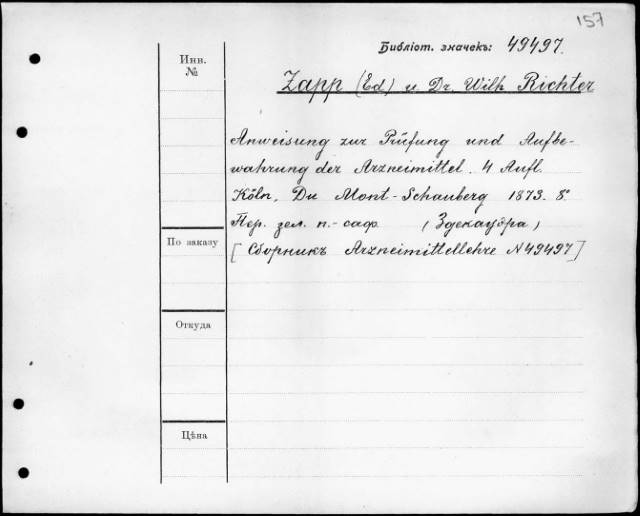 157
Библіот. значекъ: 49497.
Инв.
№
Zapp (Ed) u Dr. Wilh Richter
Anweisung zur Prüfung und Aufbe-
wahrung der Arzneimittel. 4 Aufl.
Köln, Du Mont-Schauberg 1873. 8º
Пер. зел. п.-саф. (Здекауэра)
По заказу
[Сборникъ Arzneimittellehre N 49497]
Откуда
Цѣна